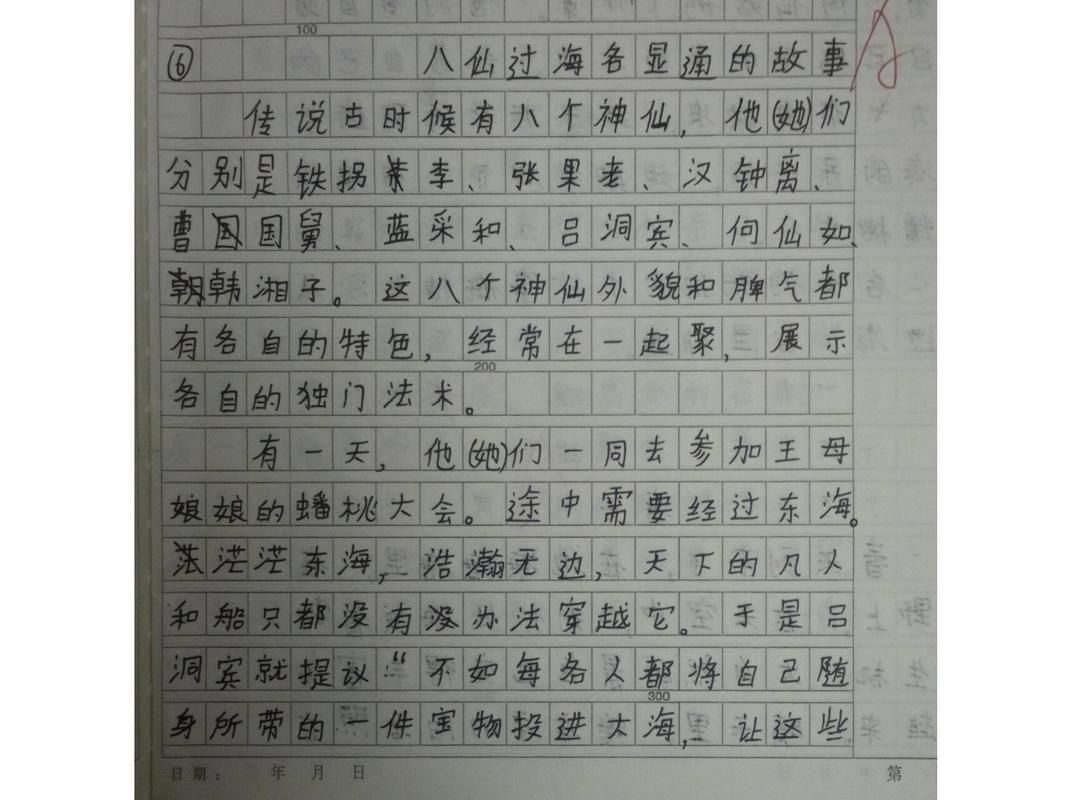 100
⑥ 八仙过海各显通的故事
传说古时候有八个神仙，他(她)们
分别是铁拐李、张果老、汉钟离、
曹国舅、蓝采和、吕洞宾、何仙如、
韩湘子。这八个神仙外貌和脾气都
有各自的特色，经常在一起聚，展示
200
各自的独门法术。
有一天，他(她)们一同去参加王母
娘娘的蟠桃大会。途中需要经过东海。
茫茫东海，浩瀚无边，天下的凡人
和船只都没有没办法穿越它。于是吕
洞宾就提议：“不如每各人都将自己随
300
身所带的一件宝物投进大海，让这些
日期： 年 月 日 第